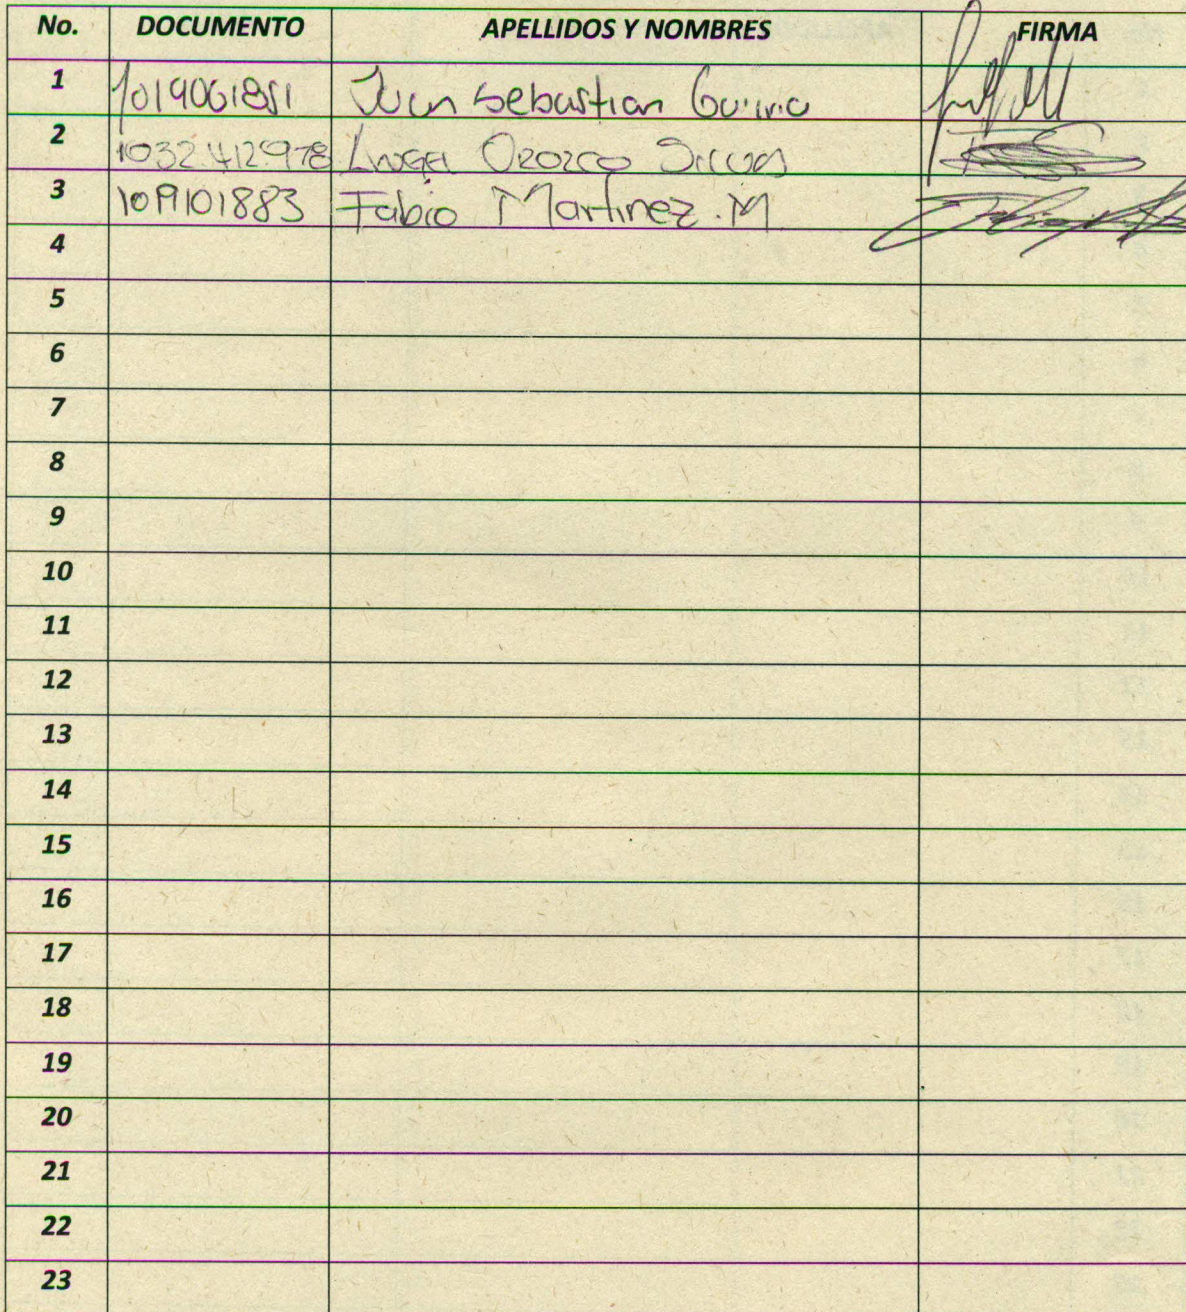 No. DOCUMENTO APELLIDOS Y NOMBRES FIRMA
1 1019061851 Juan Sebastian
2 1032412978 Angel Orozco
3 109101883 Fabio Martinez.M
4
5
6
7
8
9
10
11
12
13
14
15
16
17
18
19
20
21
22
23